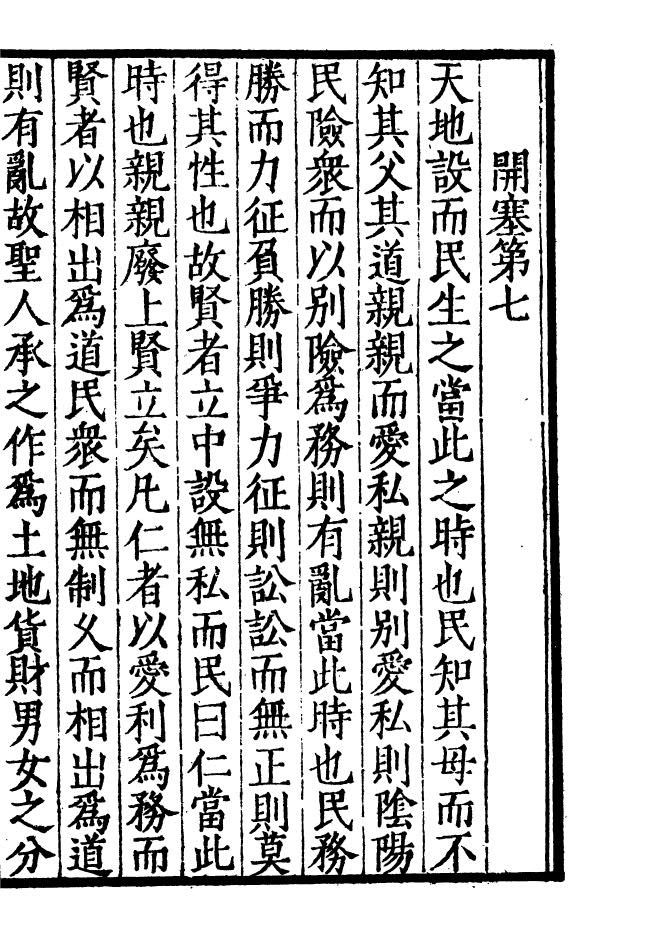 開塞第七
天地設而民生之當此之時也民知其母而不
知其父其道親親而愛私親則別愛私則陰陽
民險衆而以別險爲務則有亂當此時也民務
勝而力征負勝則爭力征則訟訟而無正則莫
得其性也故賢者立中設無私而民曰仁當此
時也親親廢上賢立矣凡仁者以愛利爲務而
賢者以相出爲道民衆而無制乆而相出爲道
則有亂故聖人承之作爲土地貨財男女之分